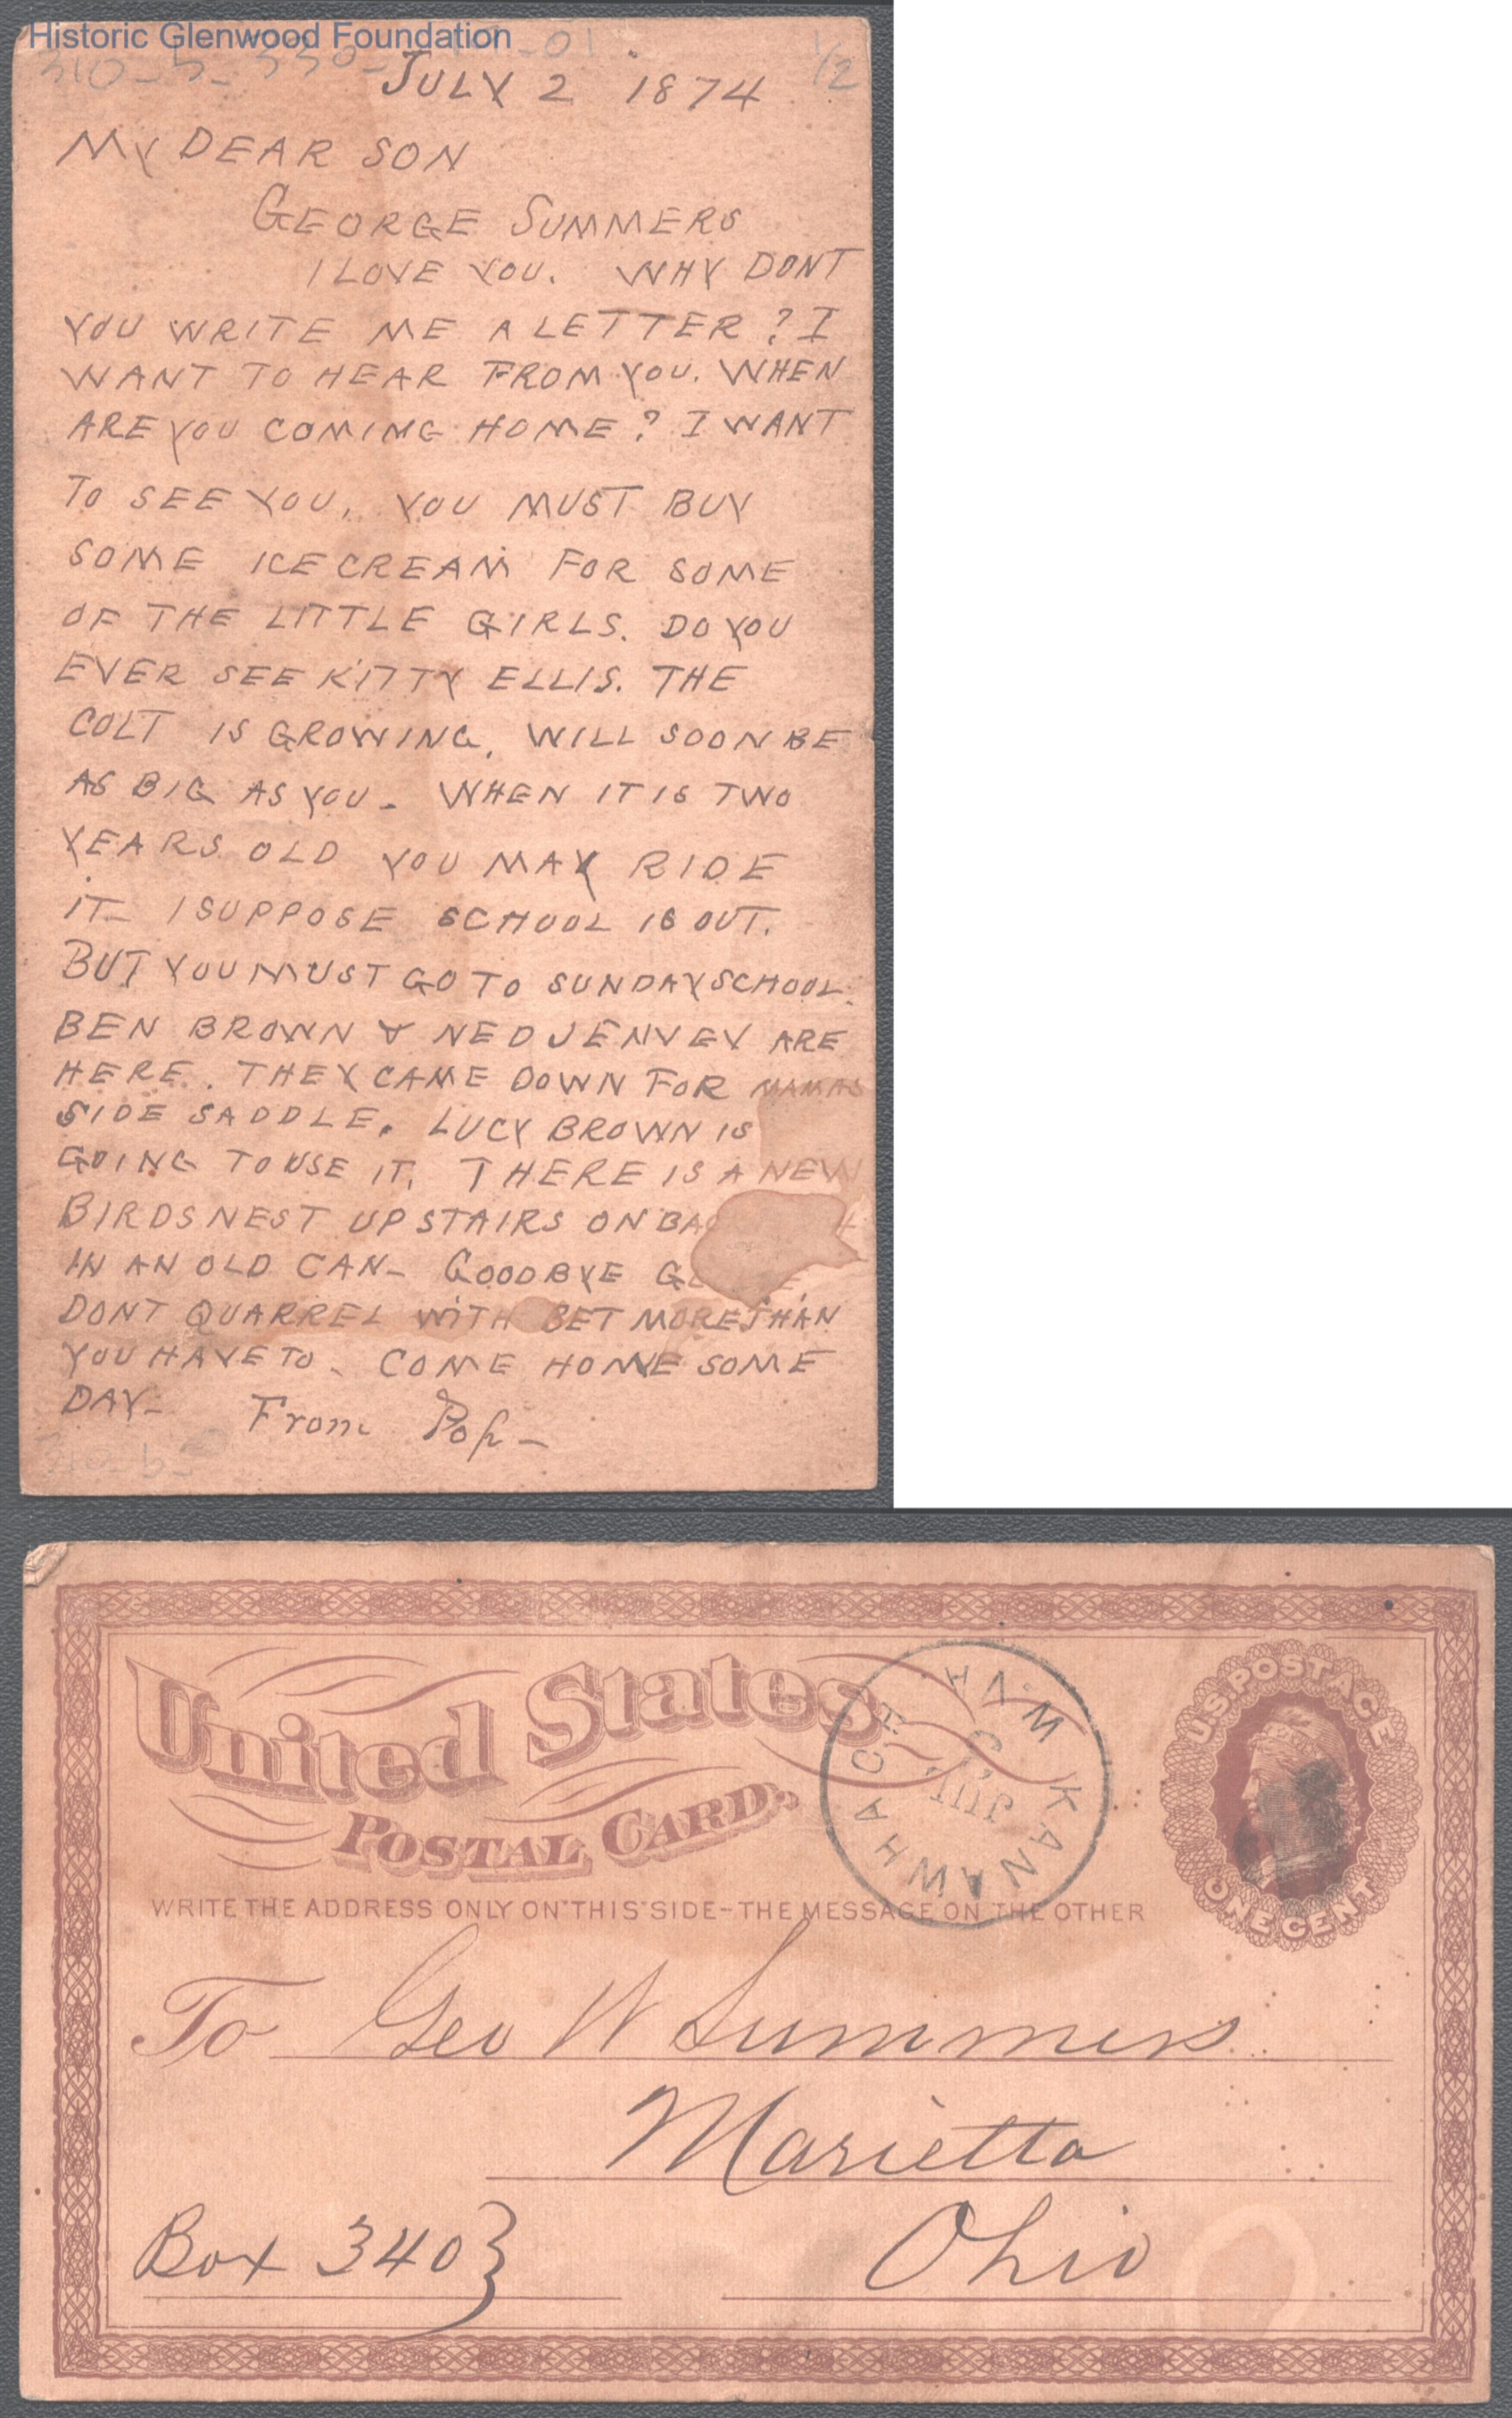 Historic Glenwood Foundation
1/2
JULY 2 1874
MY DEAR SON
GEORGE SUMMERS
I LOVE YOU. WHY DONT
YOU WRITE ME A LETTER? I
WANT TO HEAR FROM YOU. WHEN
ARE YOU COMING HOME? I WANT
TO SEE YOU. YOU MUST BUY
SOME ICE CREAM FOR SOME
OF THE LITTLE GIRLS. DO YOU
EVER SEE KITTY ELLIS. THE
COLT IS GROWING, WILL SOON BE
AS BIG AS YOU - WHEN IT IS TWO
YEARS OLD YOU MAY RIDE
IT - I SUPPOSE SCHOOL IS OUT.
BUT YOU MUST GO TO SUNDAY SCHOOL.
BEN BROWN & NED ARE
HERE. THEY CAME DOWN FOR MAMAS
SIDE SADDLE. LUCY BROWN IS
GOING TO USE IT. THERE IS A NEW
BIRDS NEST UP STAIRS ON
IN AN OLD CAN - GOODBYE
DONT QUARREL WITH BET MORE THAN
YOU HAVE TO - COME HOME SOME
DAY - From Pop -
310-b-
United States
POSTAL CARD.
WRITE THE ADDRESS ONLY ON "THIS" SIDE - THE MESSAGE ON THE OTHER
KANAWHA C H W. VA.
JUL
U.S. POSTAGE
ONE CENT
To Geo W Summers
Marietta
Box 340}
Ohio